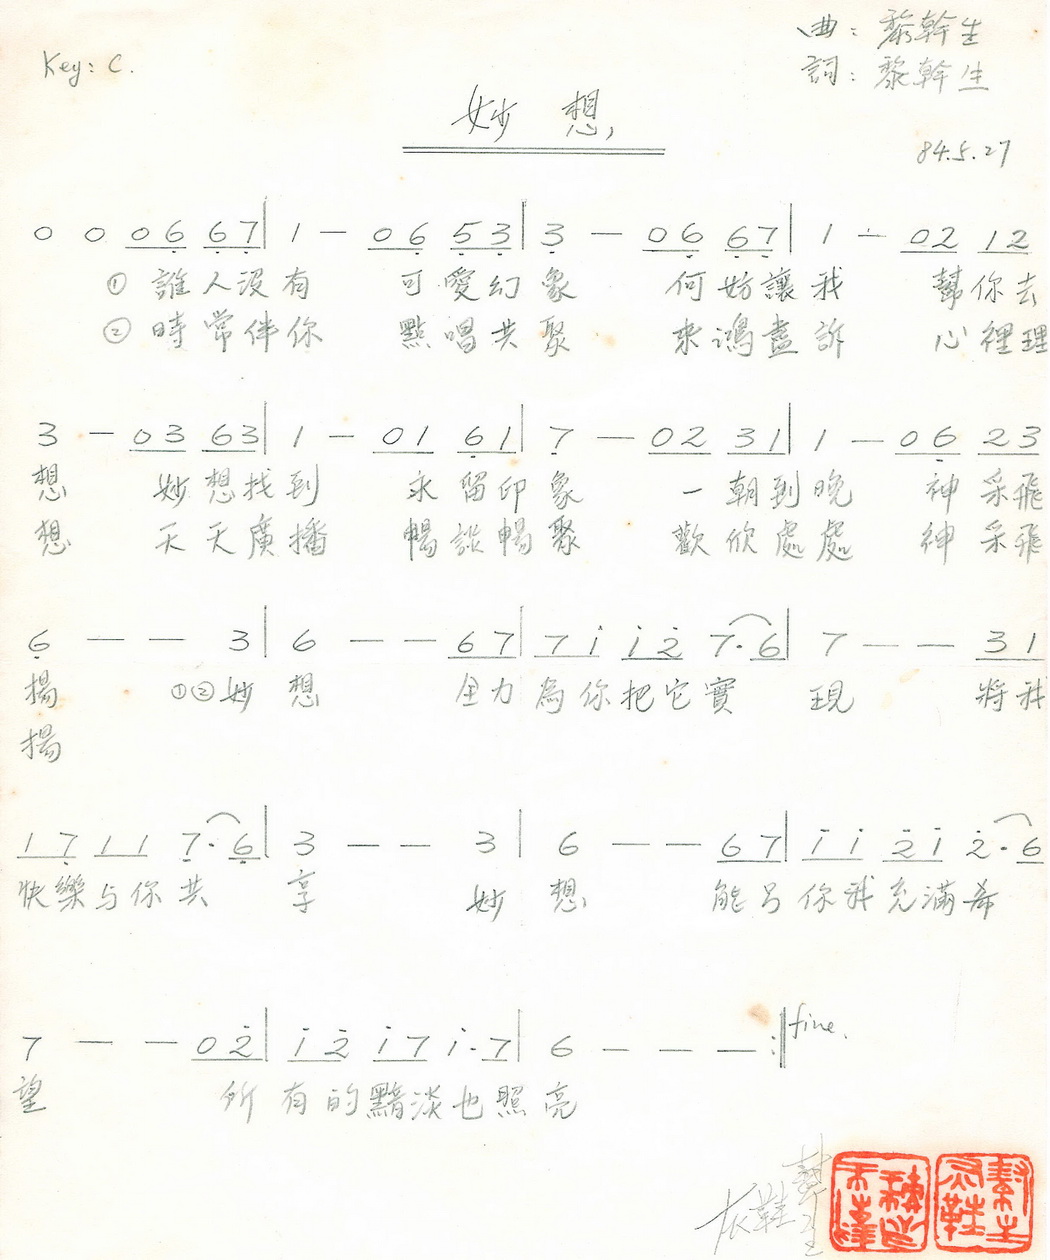 曲：黎幹生
Key: C.
詞：黎幹生
妙想
84.5.27
0 0 06 67 | 1 — 06 53 | 3 — 06 67 | 1 — 02 12
① 誰人没有 可愛幻象 何妨讓我 幫你去
② 時常伴你 點唱共聚 來鴻盡訴 心裡理
3 — 03 63 | 1 — 01 61 | 7 — 02 31 | 1 — 06 23
想 妙想找到 永留印象 一朝到晚 神采飛
想 天天廣播 暢談暢聚 歡欣處處 神采飛
6 — — 3 | 6 — — 67 | 7i i2 7·6 | 7 — — 31
揚 ①②妙想 全力為你把它實現 將我
揚
17 11 7·6 | 3 — — 3 | 6 — — 67 | ii 2i 2·6
快樂与你共享 妙想 能令你我充滿希
7 — — 02 | i2 i7 i·7 | 6 — — — :‖ fine.
望 所有的黯淡也照亮